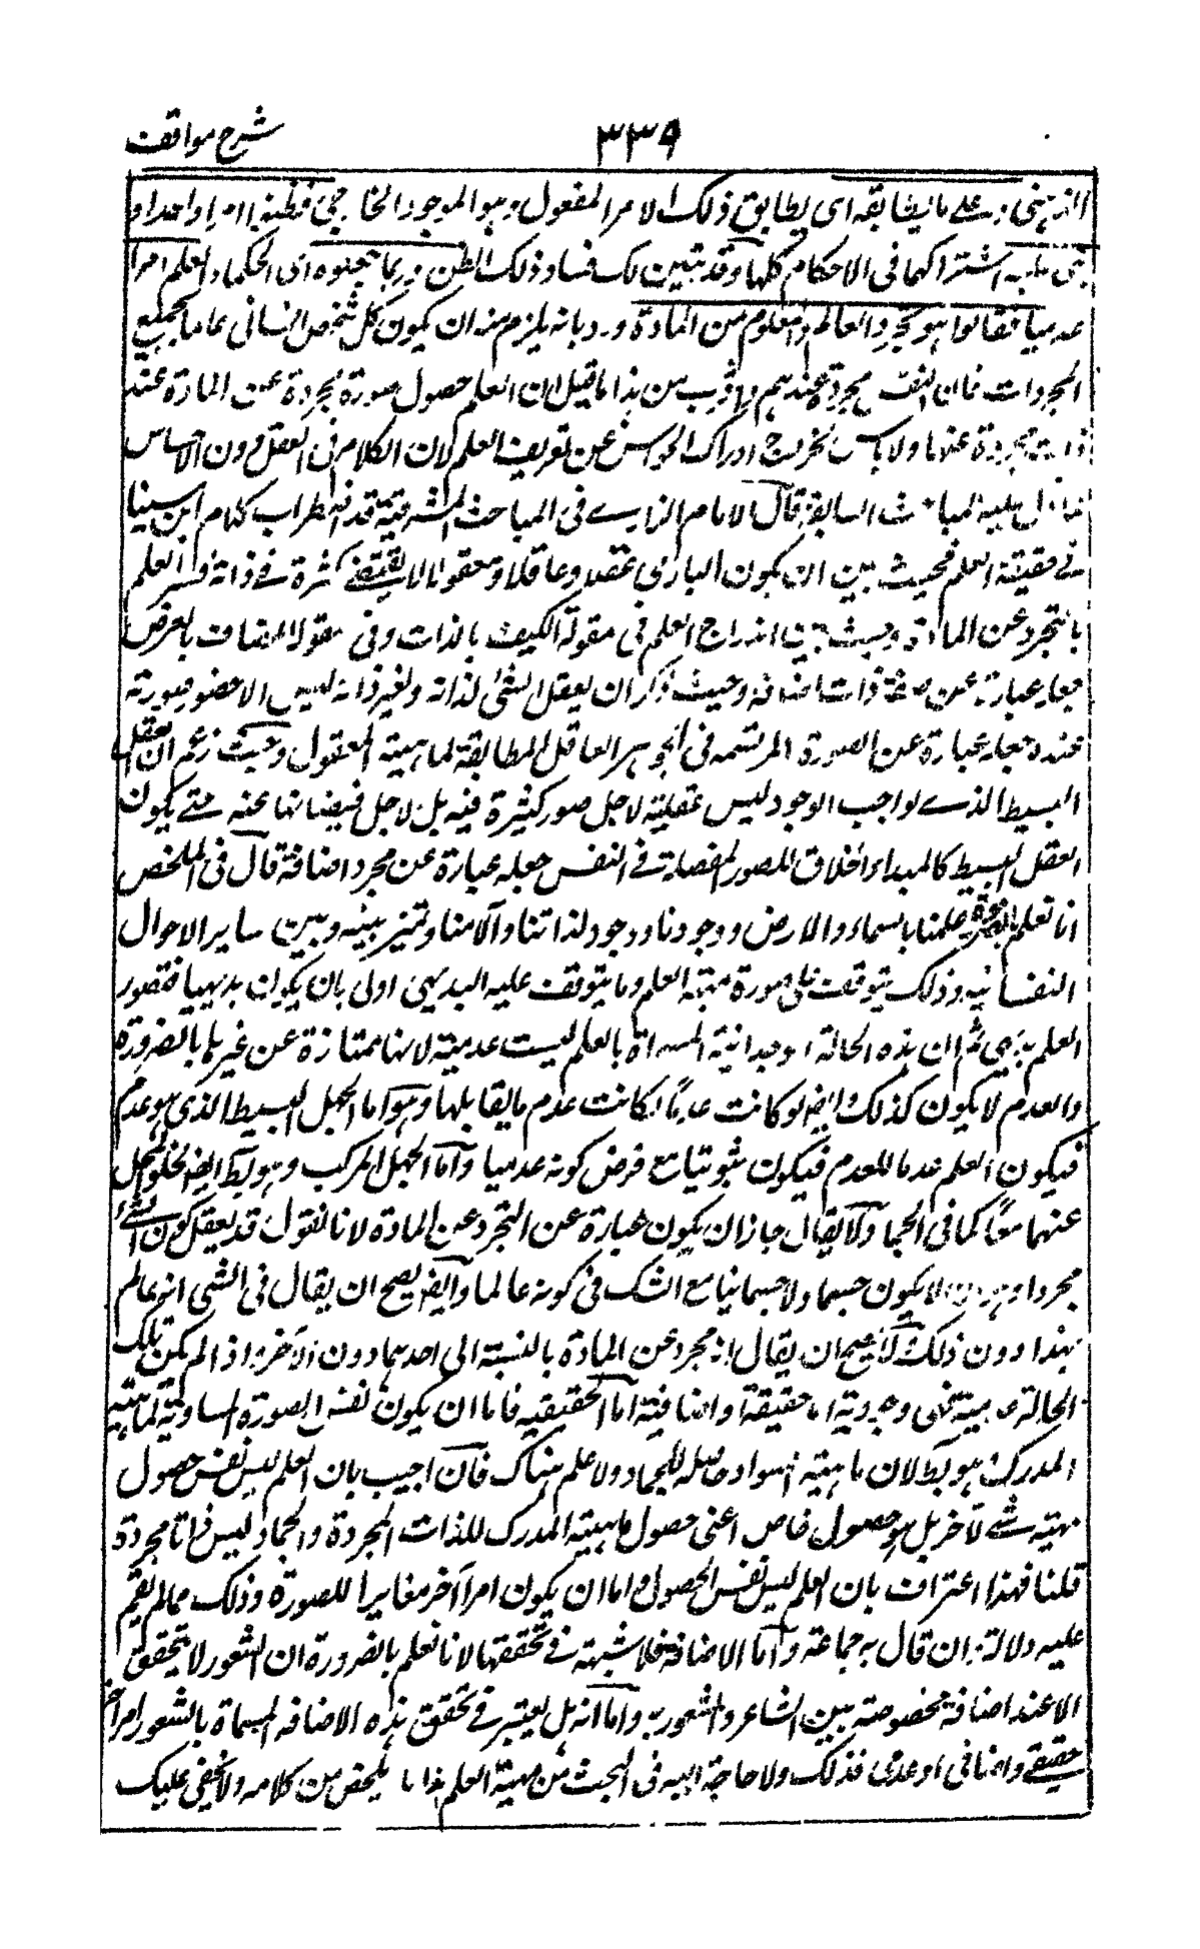 شرح مواقف
٣٣٩
الذهنى وعلى ما يطابقه اى يطابق ذلك الامر المفعول وهو الموجود الخارجى فظنهما امرا واحدا و
بنى عليه اشتراكهما فى الاحكام كلها وقد تبين لك فساد ذلك الظن وربما جعلوه اى الحكماء العلم امرا
عدميا فقالوا هو تجرد العالم والمعلوم من المادة ورد بانه يلزم منه ان يكون كل شخص انسانى عالما بجميع
المجردات فان النفس مجردة عندهم واقرب من هذا ما قيل ان العلم حصول صورة مجردة عن المادة عند
ذات مجردة عنها ولا باس بخروج ادراك الحواس عن تعريف العلم لان الكلام فى العقل دون الاحساس
المباحث السابقة قال الامام الرازے فى المباحث المشرقية قد اضطراب كلام ابن سينا
فے حقيقة العلم فحيث بين ان كون البارى عقلا وعاقلا ومعقولا لا يقتضے كثرة فے ذاته فسر العلم
بالتجرد عن المادة وحيث بين اندراج العلم فى مقولة الكيف بالذات وفى مقولة المضاف بالعرض
جعله عبارة عن صفة ذات اضافة وحيث ذكر ان تعقل الشئ لذاته ولغير ذاته ليس الا حضور صورته
عنده جعله عبارة عن الصورة المرتسمه فى الجوهر العاقل المطابقة لماهية المعقول وحيث زعم ان العقل
البسيط الذے لواجب الوجود ليس عقليته لاجل صور كثيرة فيه بل لاجل فيضانها عنه حتے يكون
العقل البسيط كالمبداء الخلاق للصور المفصلة فے النفس جعله عبارة عن مجرد اضافة قال فى الملخص
انا نعلم بالضرورة علمنا بالسماء والارض ووجودنا ووجود لذاتنا وآلامنا ونميز بينه وبين ساير الاحوال
النفسانيه وذلك يتوقف على صورة ميتة العلم وما يتوقف عليه البديهى اولى بان يكون بديهيا فتصور
العلم بديهى ثم ان هذه الحالة الوجدانية المسماة بالعلم ليست عدمية لانها ممتازة عن غيرها بالضرورة
والعدم لا يكون كذلك وايضا لو كانت عدما لكانت عدم ما يقابلها وهو اما الجهل البسيط الذى هو عدم
فيكون العلم عدما للعدم فيكون ثبوتيا مع فرض كونه عدميا واما الجهل المركب وهو بط ايضا لخلو المحل
عنهما معًا كما فى الجماد ولا يقال جاز ان يكون عبارة عن التجرد عن المادة لانا نقول قد نعقل كون الشئ
مجردا لا يكون جسما ولا جسمانيا مع الشك فى كونه عالما وايضا يصح ان يقال فى الشى انه عالم
بهذا دون ذلك لا يصح ان يقال انه مجرد عن المادة بالنسبة الى احدهما دون الآخر واذا لم يكن تلك
الحالة عدمية فهى وجودية اما حقيقة او اضافية اما الحقيقيه فاما ان يكون نفس الصورة المساوية لماهية
المدرك وهو بط لان ماهية السواد حاصله للجماد ولا علم هناك فان اجيب بان العلم ليس نفس حصول
مهية شے لآخر بل هو حصول خاص اعنى حصول ماهية المدرك للذات المجردة والجماد ليس ذاتا مجردة
قلنا فهذا اعتراف بان العلم ليس نفس الحصول واما ان يكون امرا آخر مغايرا للصورة وذلك مما لم يقم
عليه دلالة وان قال به جماعة واما الاضافة فلا شبهة فے تحققها لانا نعلم بالضرورة ان الشعور لا يتحقق
الا عند اضافة مخصوصة بين الشاعر والمشعور به واما انه هل يعتبر فے تحقق هذه الاضافه المسماة بالشعور امر آخر
حقيقے واضافى او عدمى فذلك ولا حاجة اليه فى البحث من مهية العلم هذا ما يلخص من كلامه ولا يخفى عليك